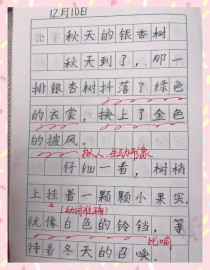 12月10日
秋天的银杏树
秋天到了，那一
排银杏树抖落了绿色
的衣裳，换上了金色
的披风。
拟人，生动形象
仔细一看，树梢
上挂着一颗颗小果实，
（动词准确）
就像白色的铃铛，等
比喻
待着冬天的召唤。